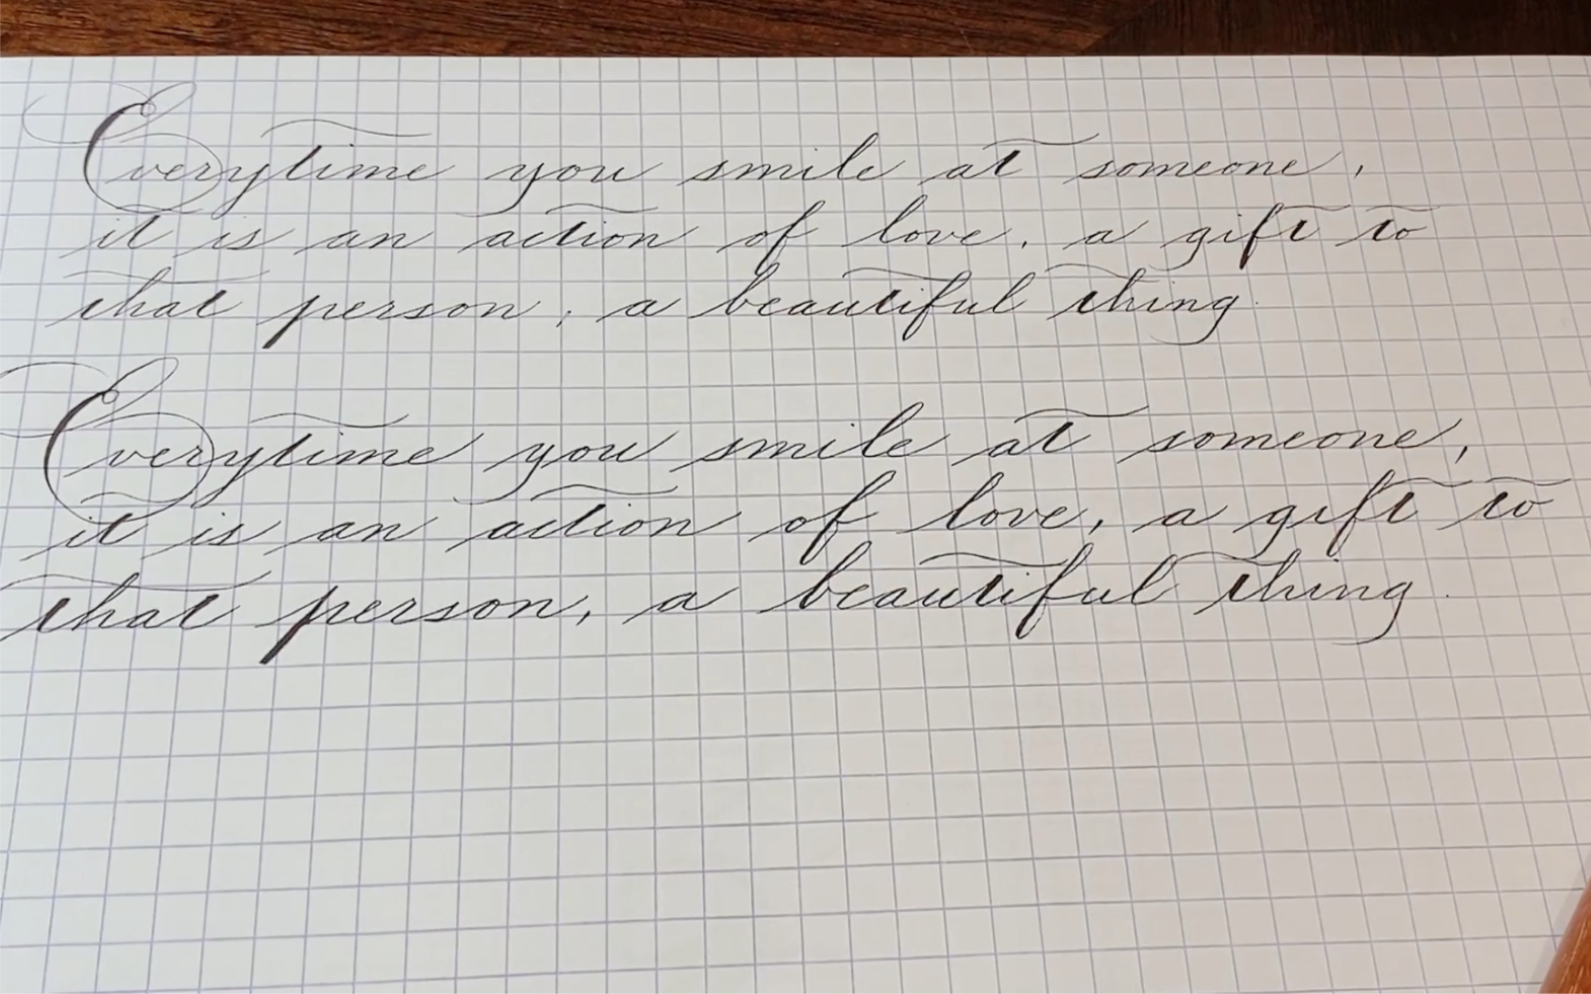 Everytime you smile at someone,
it is an action of love, a gift to
that person, a beautiful thing.
Everytime you smile at someone,
it is an action of love, a gift to
that person, a beautiful thing.